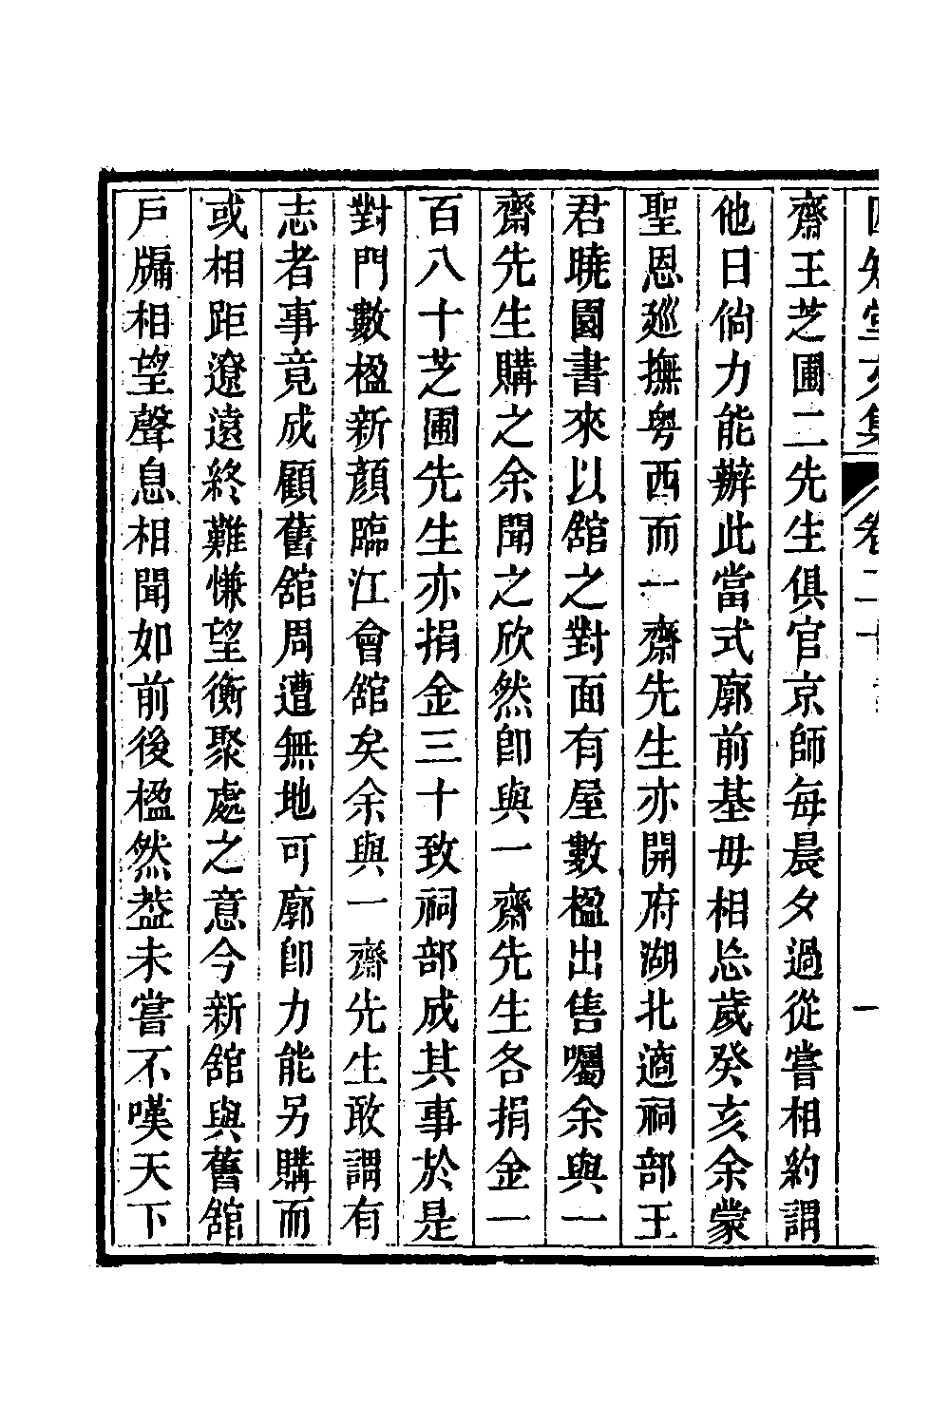 齋王芝圃二先生俱官京師每晨夕過從嘗相約謂
他日倘力能辦此當式廓前基毋相忘歲癸亥余蒙
聖恩廵撫粤西而一齋先生亦開府湖北適祠部王
君曉園書來以舘之對面有屋數楹出售囑余與一
齋先生購之余聞之欣然卽與一齋先生各捐金一
百八十芝圃先生亦捐金三十致祠部成其事於是
對門數楹新顏臨江會舘矣余與一齋先生敢謂有
志者事竟成顧舊舘周遭無地可廓卽力能另購而
或相距遼遠終難慊望衡聚處之意今新舘與舊舘
戶牖相望聲息相聞如前後楹然葢未嘗不嘆天下